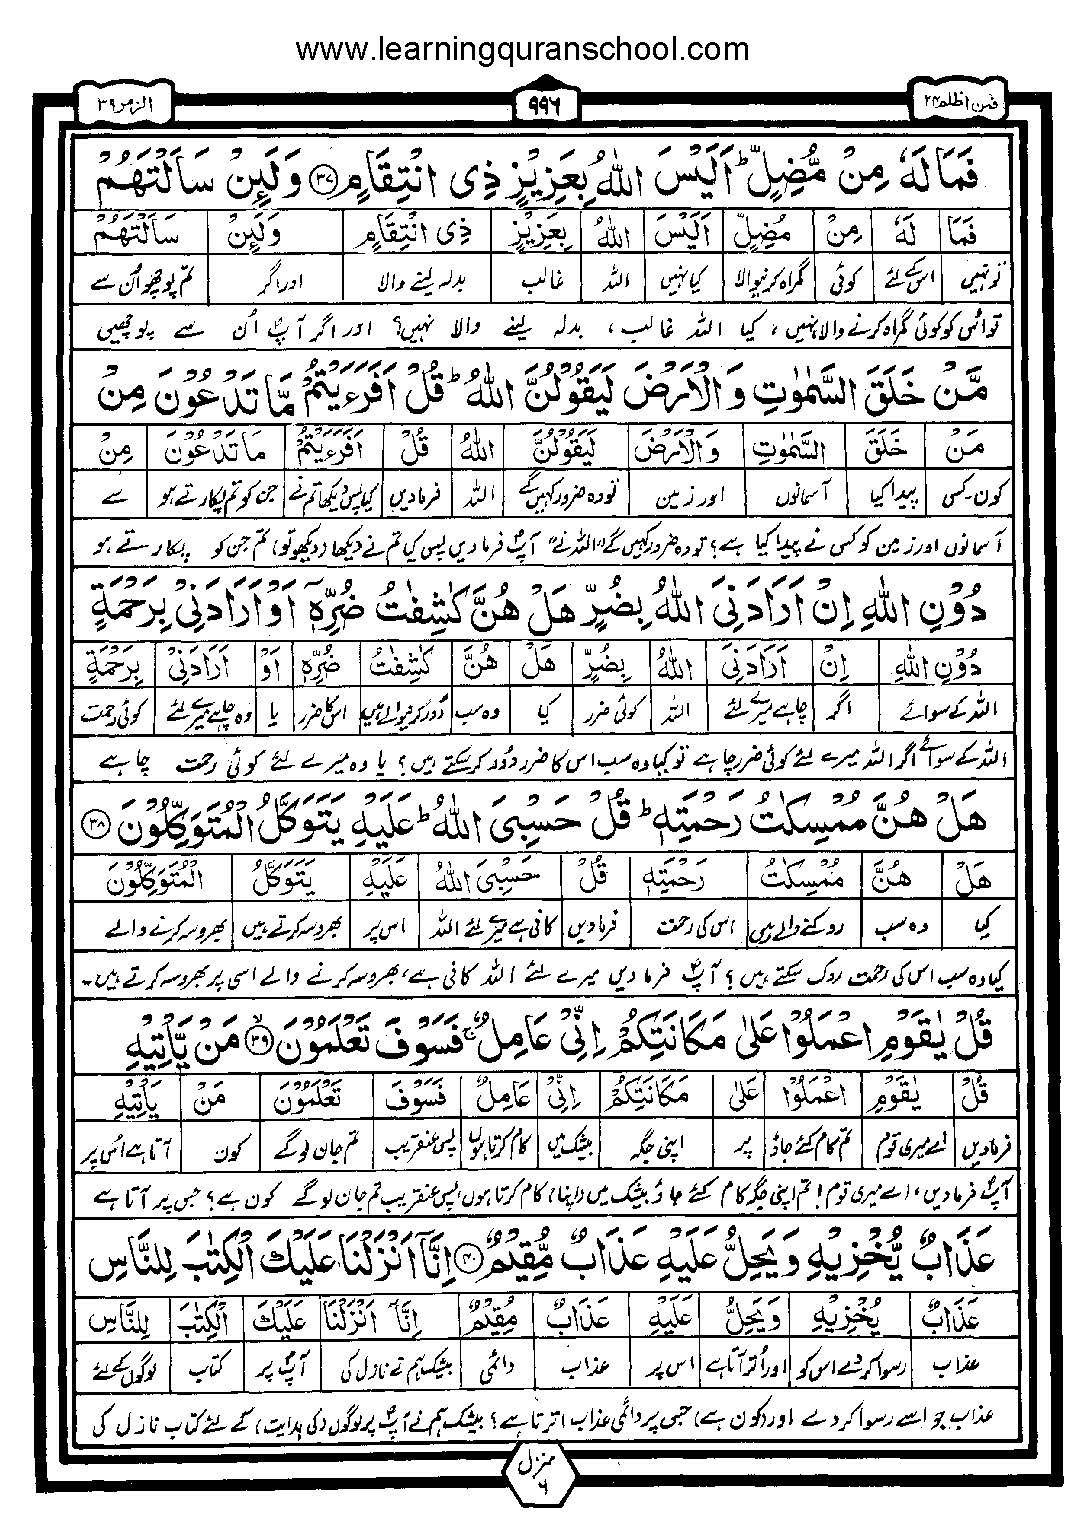 www.learningquranschool.com
فمن اظلم ۲۴
۹۹۶
الزمر ۳۹
فَمَا لَهٗ مِنْ مُّضِلٍّ ؕ اَلَيْسَ اللّٰهُ بِعَزِيْزٍ ذِى انْتِقَامٍ ﴿۳۷﴾ وَلَئِنْ سَاَلْتَهُمْ
فَمَا لَهٗ مِنْ مُضِلٍّ اَلَيْسَ اللّٰهُ بِعَزِيْزٍ ذِى انْتِقَامٍ وَلَئِنْ سَاَلْتَهُمْ
تو نہیں اس کے لئے کوئی گمراہ کرنیوالا کیا نہیں اللہ غالب بدلہ لینے والا اور اگر تم پوچھو اُن سے
تو اس کو کوئی گمراہ کرنے والا نہیں، کیا اللہ غالب، بدلہ لینے والا نہیں؟ اور اگر آپؐ اُن سے پوچھیں
مَّنْ خَلَقَ السَّمٰوٰتِ وَالْاَرْضَ لَيَقُوْلُنَّ اللّٰهُ ؕ قُلْ اَفَرَءَيْتُمْ مَّا تَدْعُوْنَ مِنْ
مَنْ خَلَقَ السَّمٰوٰتِ وَالْاَرْضَ لَيَقُوْلُنَّ اللّٰهُ قُلْ اَفَرَءَيْتُمْ مَا تَدْعُوْنَ مِنْ
کون۔کس پیدا کیا آسمانوں اور زمین تو وہ ضرور کہیں گے اللہ فرمادیں کیا پس دیکھا تم نے جن کو تم پکارتے ہو سے
آسمانوں اور زمین کو کس نے پیدا کیا ہے؟ تو وہ ضرور کہیں گے "اللہ نے" آپؐ فرمادیں پس کیا تم نے دیکھا (دیکھو تو) تم جن کو پکارتے ہو
دُوْنِ اللّٰهِ اِنْ اَرَادَنِىَ اللّٰهُ بِضُرٍّ هَلْ هُنَّ كٰشِفٰتُ ضُرِّهٖۤ اَوْ اَرَادَنِىْ بِرَحْمَةٍ
دُوْنِ اللّٰهِ اِنْ اَرَادَنِىَ اللّٰهُ بِضُرٍّ هَلْ هُنَّ كٰشِفٰتُ ضُرِّهٖ اَوْ اَرَادَنِىْ بِرَحْمَةٍ
اللہ کے سوائے اگر چاہے میرے لئے اللہ کوئی ضرر کیا وہ سب دُور کرنیوالے ہیں اس کا ضرر یا وہ چاہے میرے لئے کوئی رحمت
اللہ کے سوائے اگر اللہ میرے لئے کوئی ضرر چاہے تو کیا وہ سب اس کا ضرر دُور کرسکتے ہیں؟ یا وہ میرے لئے کوئی رحمت چاہے
هَلْ هُنَّ مُمْسِكٰتُ رَحْمَتِهٖ ؕ قُلْ حَسْبِىَ اللّٰهُ ؕ عَلَيْهِ يَتَوَكَّلُ الْمُتَوَكِّلُوْنَ ﴿۳۸﴾
هَلْ هُنَّ مُمْسِكٰتُ رَحْمَتِهٖ قُلْ حَسْبِىَ اللّٰهُ عَلَيْهِ يَتَوَكَّلُ الْمُتَوَكِّلُوْنَ
کیا وہ سب روکنے والے ہیں اس کی رحمت فرمادیں کافی ہے میرے لئے اللہ اس پر بھروسہ کرتے ہیں بھروسہ کرنے والے
کیا وہ سب اس کی رحمت روک سکتے ہیں؟ آپؐ فرما دیں میرے لئے اللہ کافی ہے، بھروسہ کرنے والے اسی پر بھروسہ کرتے ہیں۔
قُلْ يٰقَوْمِ اعْمَلُوْا عَلٰى مَكَانَتِكُمْ اِنِّىْ عَامِلٌ ۚ فَسَوْفَ تَعْلَمُوْنَ ﴿۳۹﴾ۙ مَنْ يَّاْتِيْهِ
قُلْ يٰقَوْمِ اعْمَلُوْا عَلٰى مَكَانَتِكُمْ اِنِّىْ عَامِلٌ فَسَوْفَ تَعْلَمُوْنَ مَنْ يَاْتِيْهِ
فرمادیں اے میری قوم تم کام کئے جاؤ پر اپنی جگہ بیشک میں کام کرتا ہوں پس عنقریب تم جان لو گے کون آتا ہے اُس پر
آپؐ فرمادیں، اے میری قوم! تم اپنی جگہ کام کئے جاؤ بیشک میں (اپنا) کام کرتا ہوں، پس عنقریب تم جان لو گے کون ہے؟ جس پر آتا ہے
عَذَابٌ يُّخْزِيْهِ وَيَحِلُّ عَلَيْهِ عَذَابٌ مُّقِيْمٌ ﴿۴۰﴾ اِنَّاۤ اَنْزَلْنَا عَلَيْكَ الْكِتٰبَ لِلنَّاسِ
عَذَابٌ يُخْزِيْهِ وَيَحِلُّ عَلَيْهِ عَذَابٌ مُقِيْمٌ اِنَّا اَنْزَلْنَا عَلَيْكَ الْكِتٰبَ لِلنَّاسِ
عذاب رسوا کردے اس کو اور اُتر آتا ہے اس پر عذاب دائمی بیشک ہم نے نازل کی آپؐ پر کتاب لوگوں کے لئے
عذاب جو اسے رسوا کردے اور (کون ہے) جس پر دائمی عذاب اترتا ہے؟ بیشک ہم نے آپؐ پر لوگوں (کی ہدایت) کے لئے کتاب نازل کی
منزل ۶